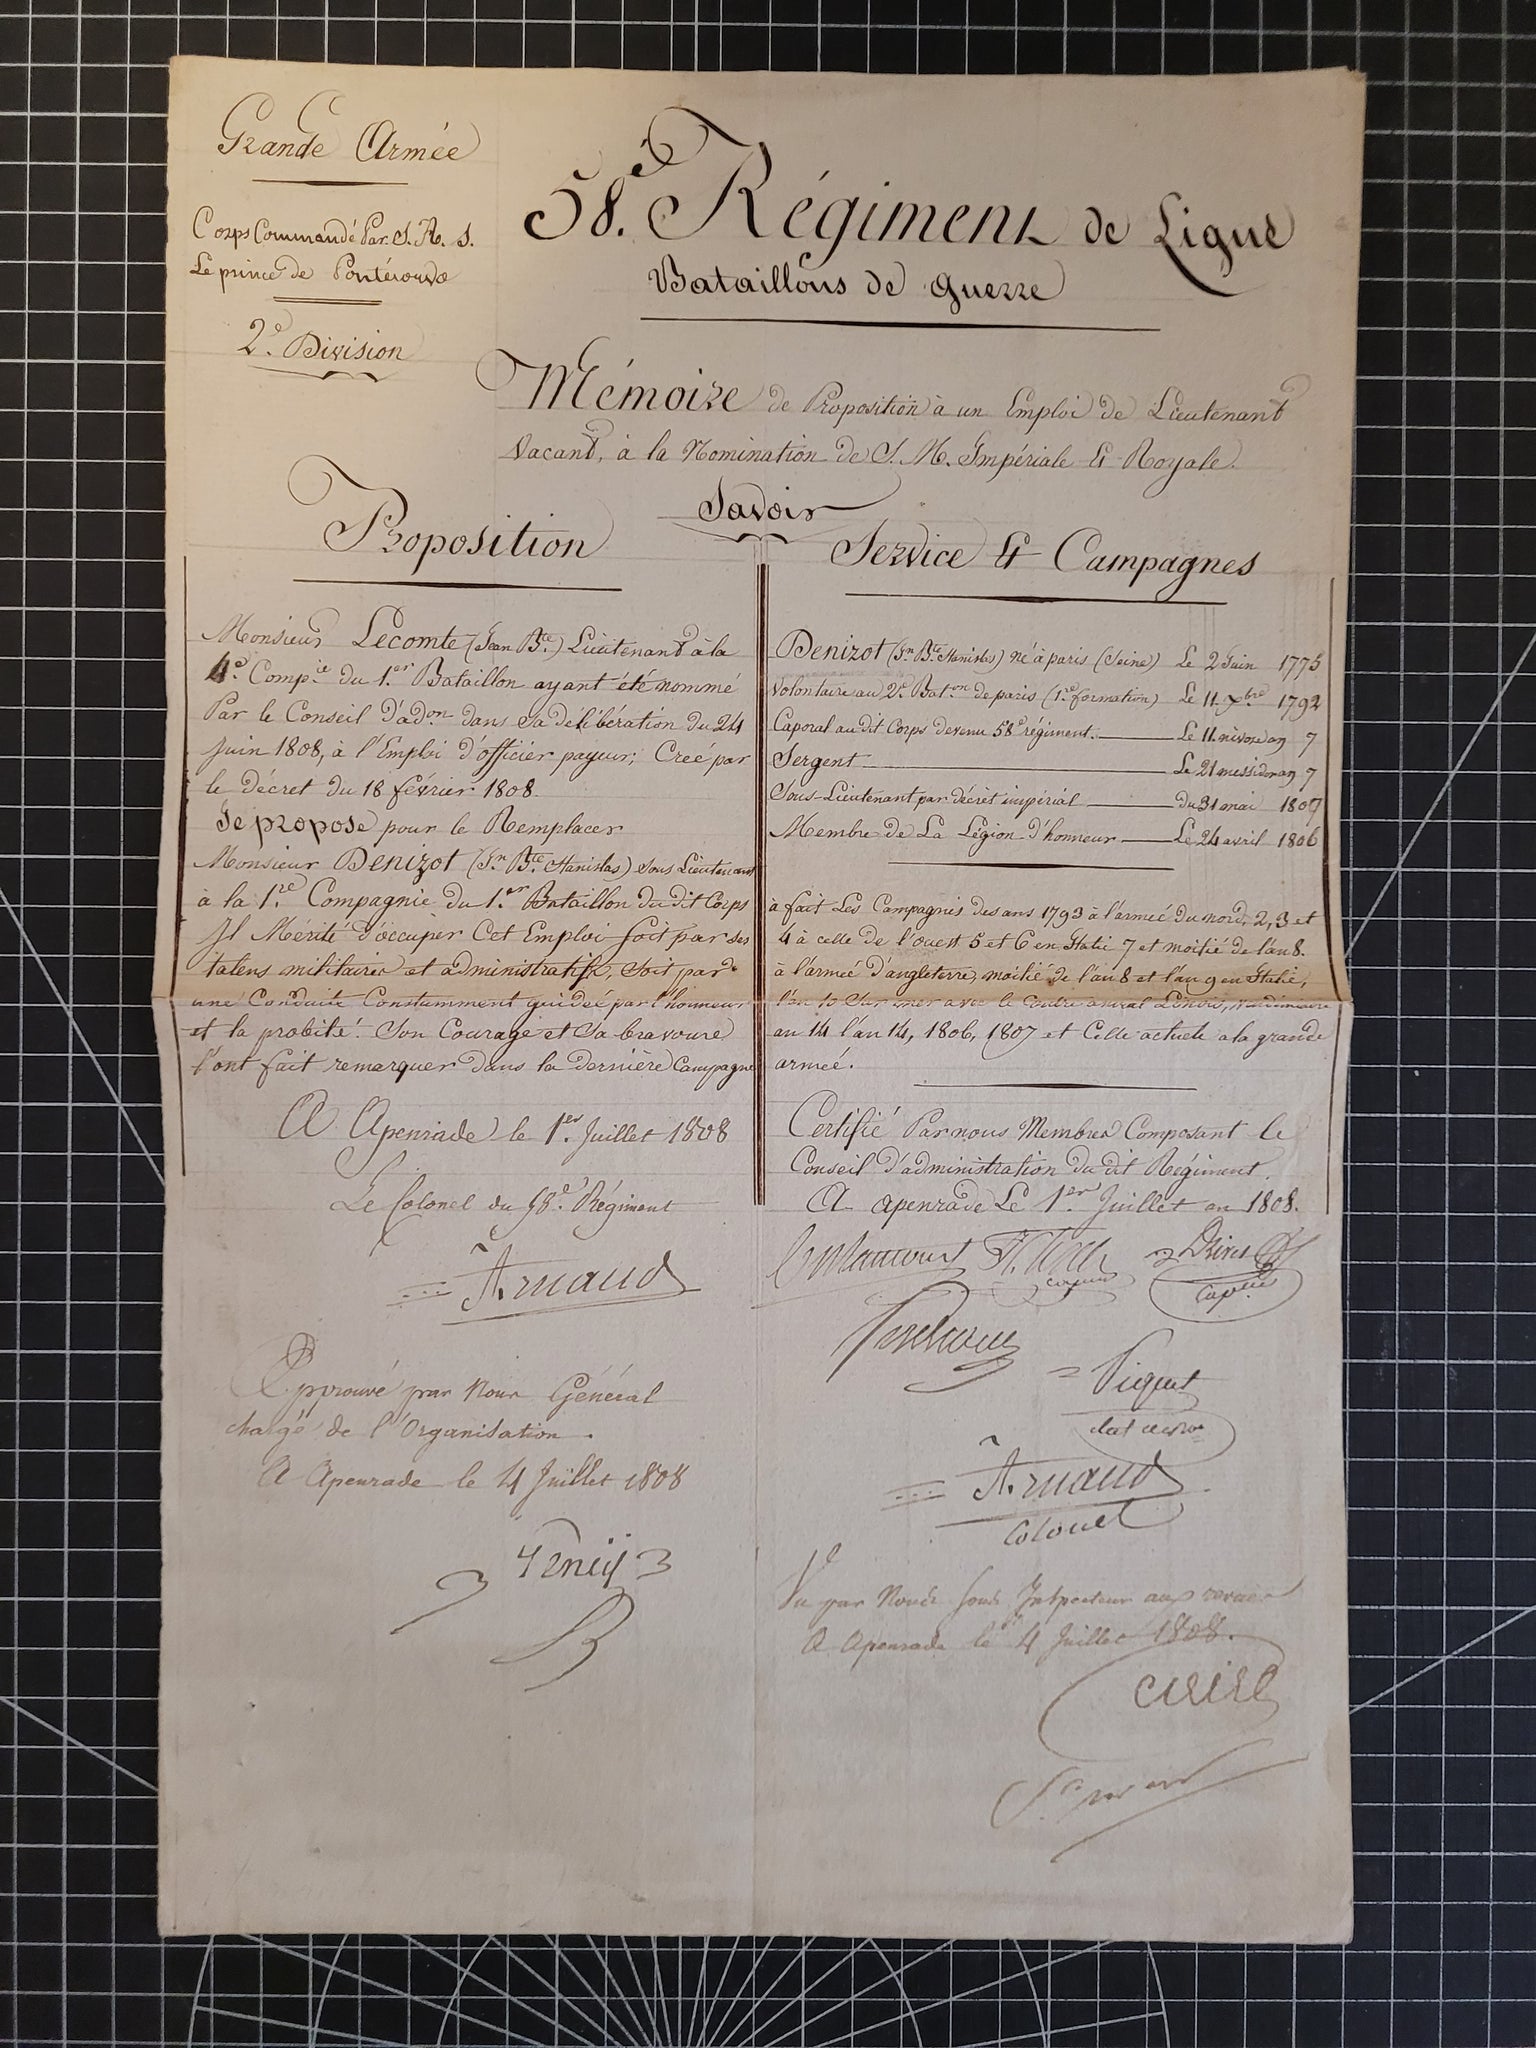 Grande Armée
Corps Commandé Par S. A. S.
Le prince de Pontécorvo
2e. Division
58e. Régiment de Ligne
Bataillons de Guerre
Mémoire de Proposition à un Emploi de Lieutenant
Vacant, à la Nomination de S. M. Impériale Et Royale.
Savoir
Proposition
Monsieur Lecomte (Jean Bte.) Lieutenant à la
4e. Compie. du 1er. Bataillon ayant été nommé
Par le Conseil d'adon. dans sa délibération du 24
Juin 1808, à l'Emploi d'officier payeur; Creé par
le décret du 18 février 1808.
Je propose pour le Remplacer
Monsieur Denizot (Jn. Bte. Stanislas) Sous Lieutenant
à la 1re. Compagnie du 1er. Bataillon du dit Corps
Il Mérité d'occuper Cet Emploi soit par ses
talens militaires et administratifs, soit par
une Conduite Constamment guidée par l'honneur
et la probité. Son Courage et Sa bravoure
l'ont fait remarquer dans la dernière Campagne
A Apenrade le 1er. Juillet 1808
Le Colonel du 58e. Régiment
Arnaud
Approuvé par Nous Général
chargé de l'Organisation.
A Apenrade le 4 Juillet 1808
Service Et Campagnes
Denizot (Jn. Bte. Stanislas) né à paris (Seine) Le 2 Juin 1775
Volontaire au 2e. Baton. de paris (1re. formation) Le 11 Xbre 1792
Caporal au dit Corps devenu 58e régiment. Le 11 nivose an 7
Sergent Le 21 messidor an 7
Sous-Lieutenant par décret impérial du 31 mai 1807
Membre de La Légion d'honneur Le 24 avril 1806
à fait Les Campagnes des ans 1793 à l'armée du nord, 2, 3 et
4 à celle de l'ouest 5 et 6 en Italie 7 et moitié de l'an 8.
à l'armée d'angleterre, moitié de l'an 8 et l'an 9 en Italie,
l'an 10 Sur mer avec le Contre amiral Linois, Vendémiaire
an 14 l'an 14, 1806, 1807 et Celle actuele a la grande
armée.
Certifié Par nous Membres Composant le
Conseil d'administration du dit Régiment.
A apenrade Le 1er. Juillet an 1808.
capne
Piquet
Arnaud
Colonel
Vu par Nous sous Inspecteur aux revues
A Apenrade le 4 Juillet 1808.